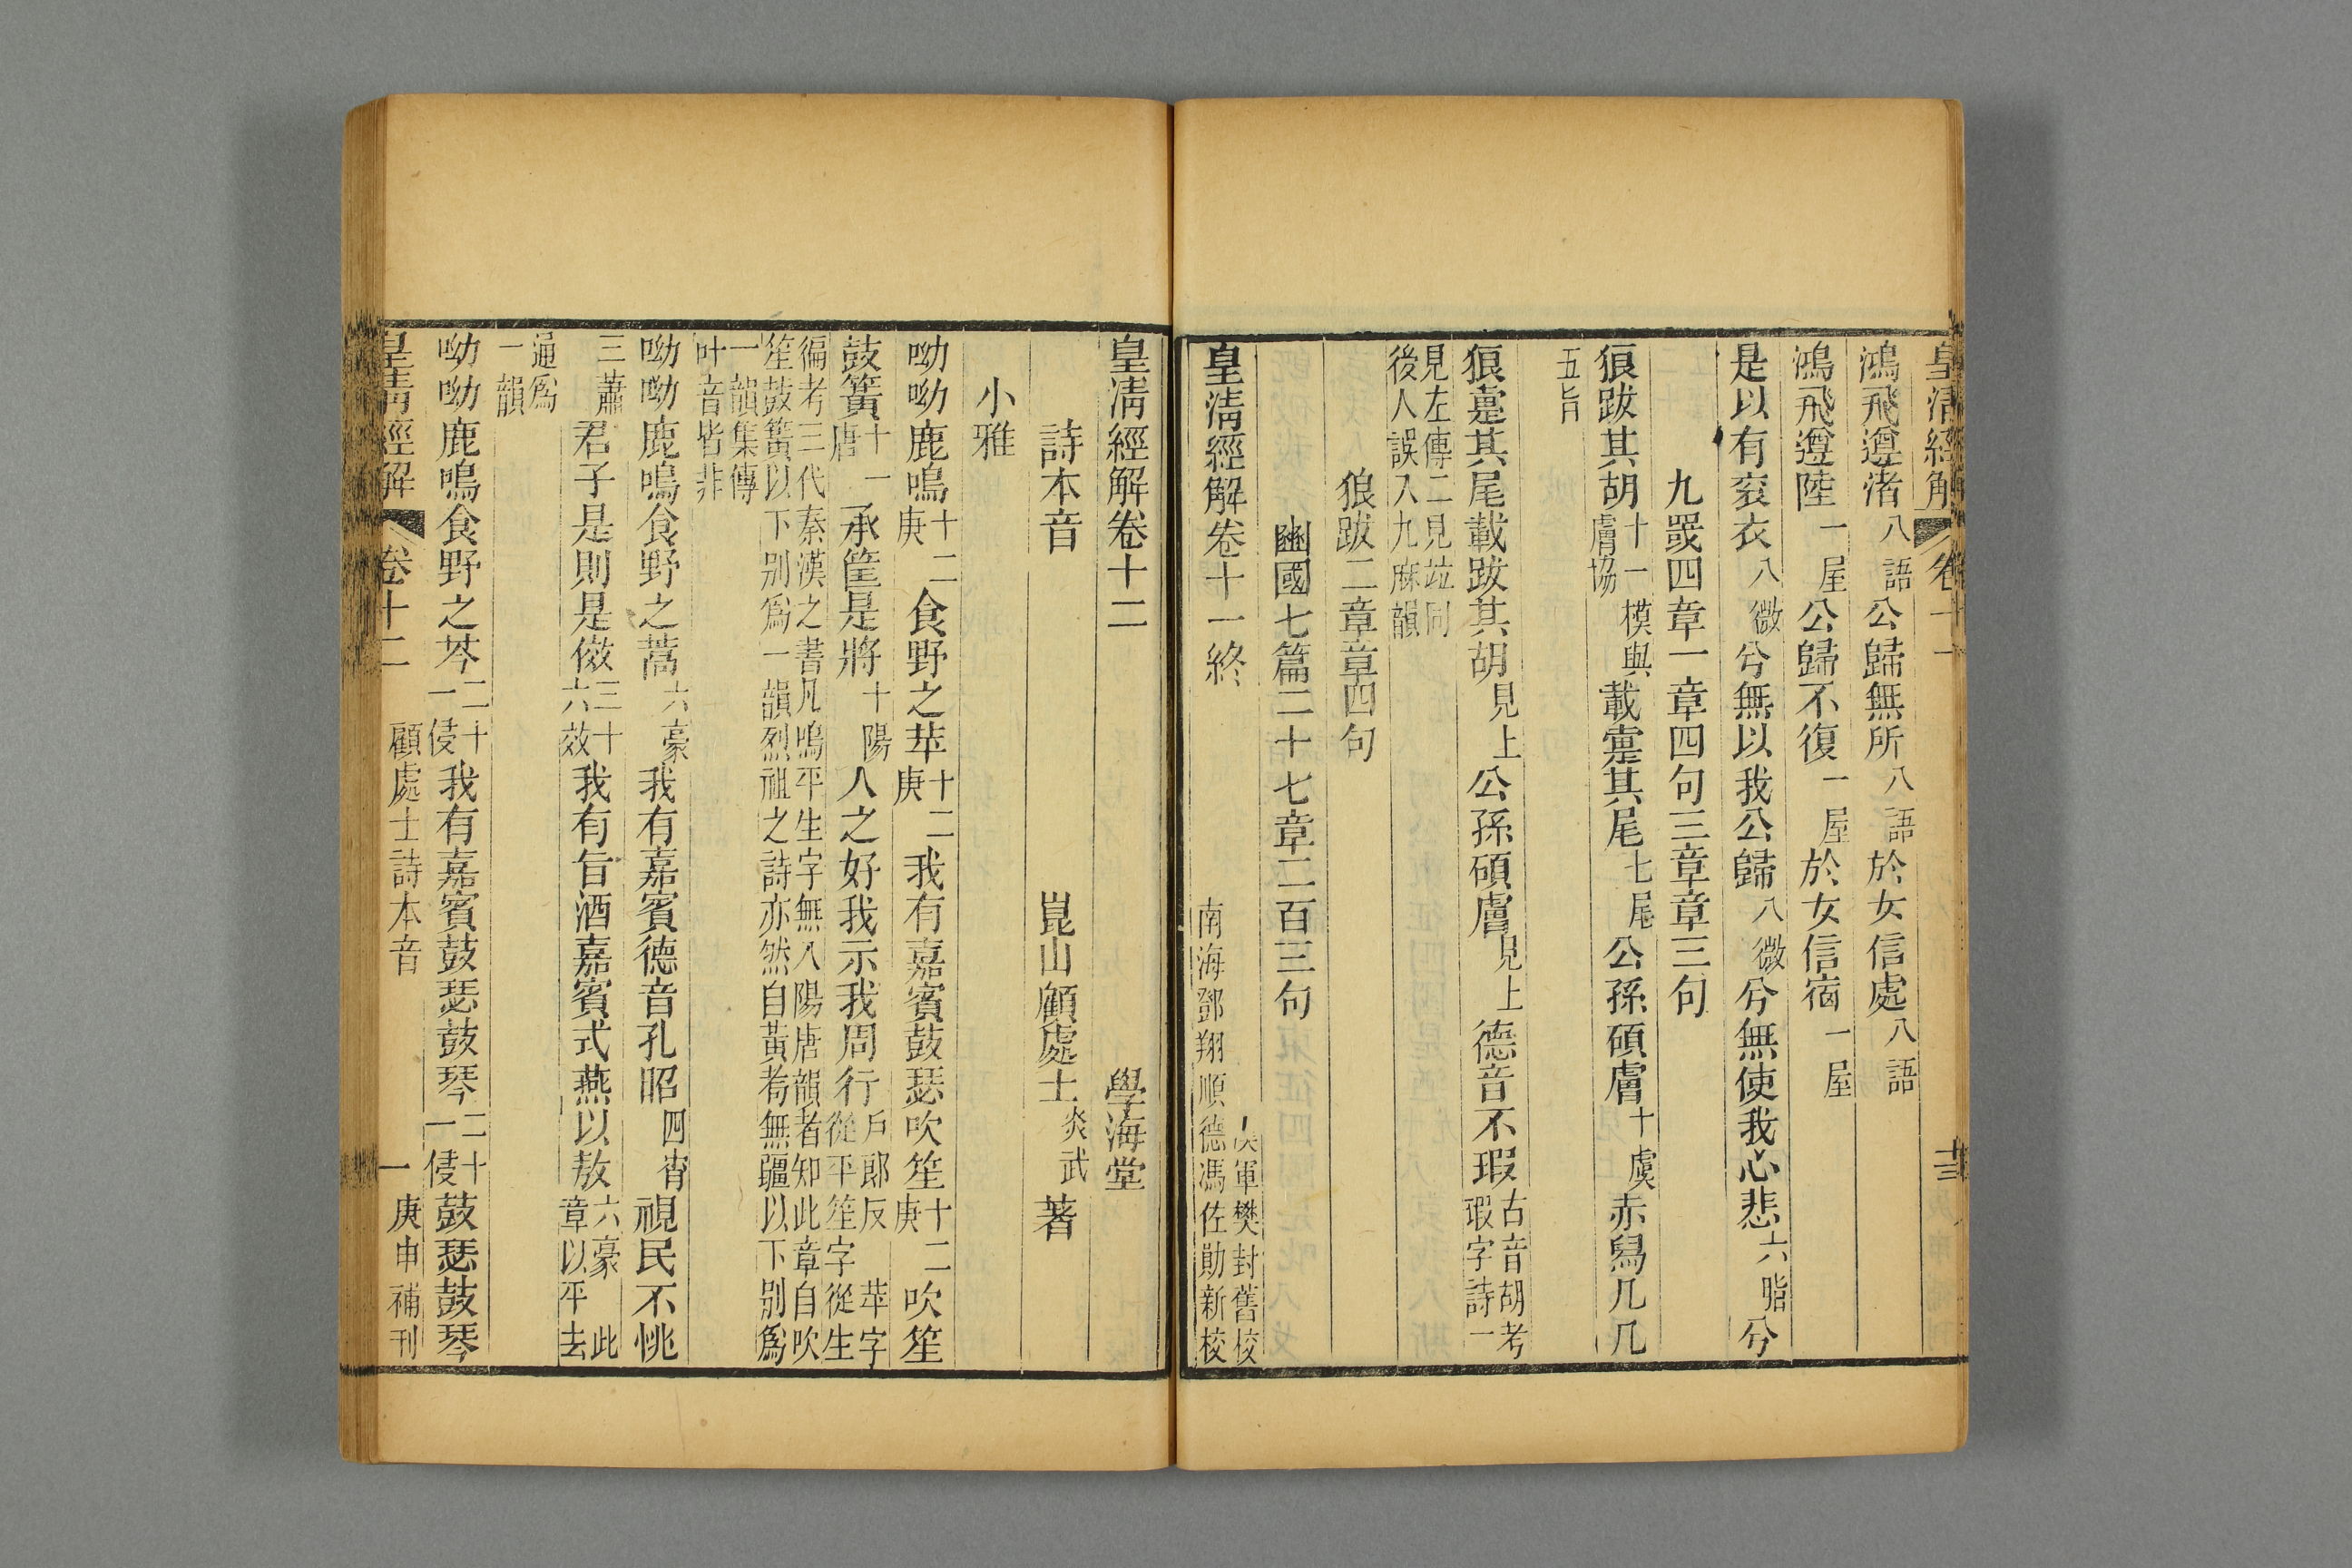 皇清經解 卷十一 十三
鴻飛遵渚八語公歸無所八語於女信處八語
鴻飛遵陸一屋公歸不復一屋於女信宿一屋
是以有袞衣八微兮無以我公歸八微兮無使我心悲六脂兮
九罭四章一章四句三章章三句
狼跋其胡十一模與膚協載疐其尾七尾公孫碩膚十虞赤舄几几
五旨
狼疐其尾載跋其胡見上公孫碩膚見上德音不瑕古音胡考瑕字詩一
見左傳二見竝同後人誤入九麻韻
狼跋二章章四句
豳國七篇二十七章二百三句
漢軍樊封舊校
皇清經解卷十一終 南海鄧翔順德馮佐勛新校
皇清經解卷十二 學海堂
詩本音 崑山顧處士炎武著
小雅
呦呦鹿鳴十二庚食野之苹十二庚我有嘉賓鼓瑟吹笙十二庚吹笙
鼓簧十一唐承筐是將十陽人之好我示我周行戶郎反 苹字從平笙字從生
徧考三代秦漢之書凡鳴平生字無入陽唐韻者知此章自吹笙鼓簧以下別爲一韻烈祖之詩亦然自黃耇無疆以下別爲
一韻集傳叶音皆非
呦呦鹿鳴食野之蒿六豪我有嘉賓德音孔昭四宵視民不恌
三蕭君子是則是傚三十六效我有旨酒嘉賓式燕以敖六豪 此章以平去
通爲一韻
呦呦鹿鳴食野之芩二十一侵我有嘉賓鼓瑟鼓琴二十一侵鼓瑟鼓琴
皇清經解 卷十二 顧處士詩本音 一 庚申補刊